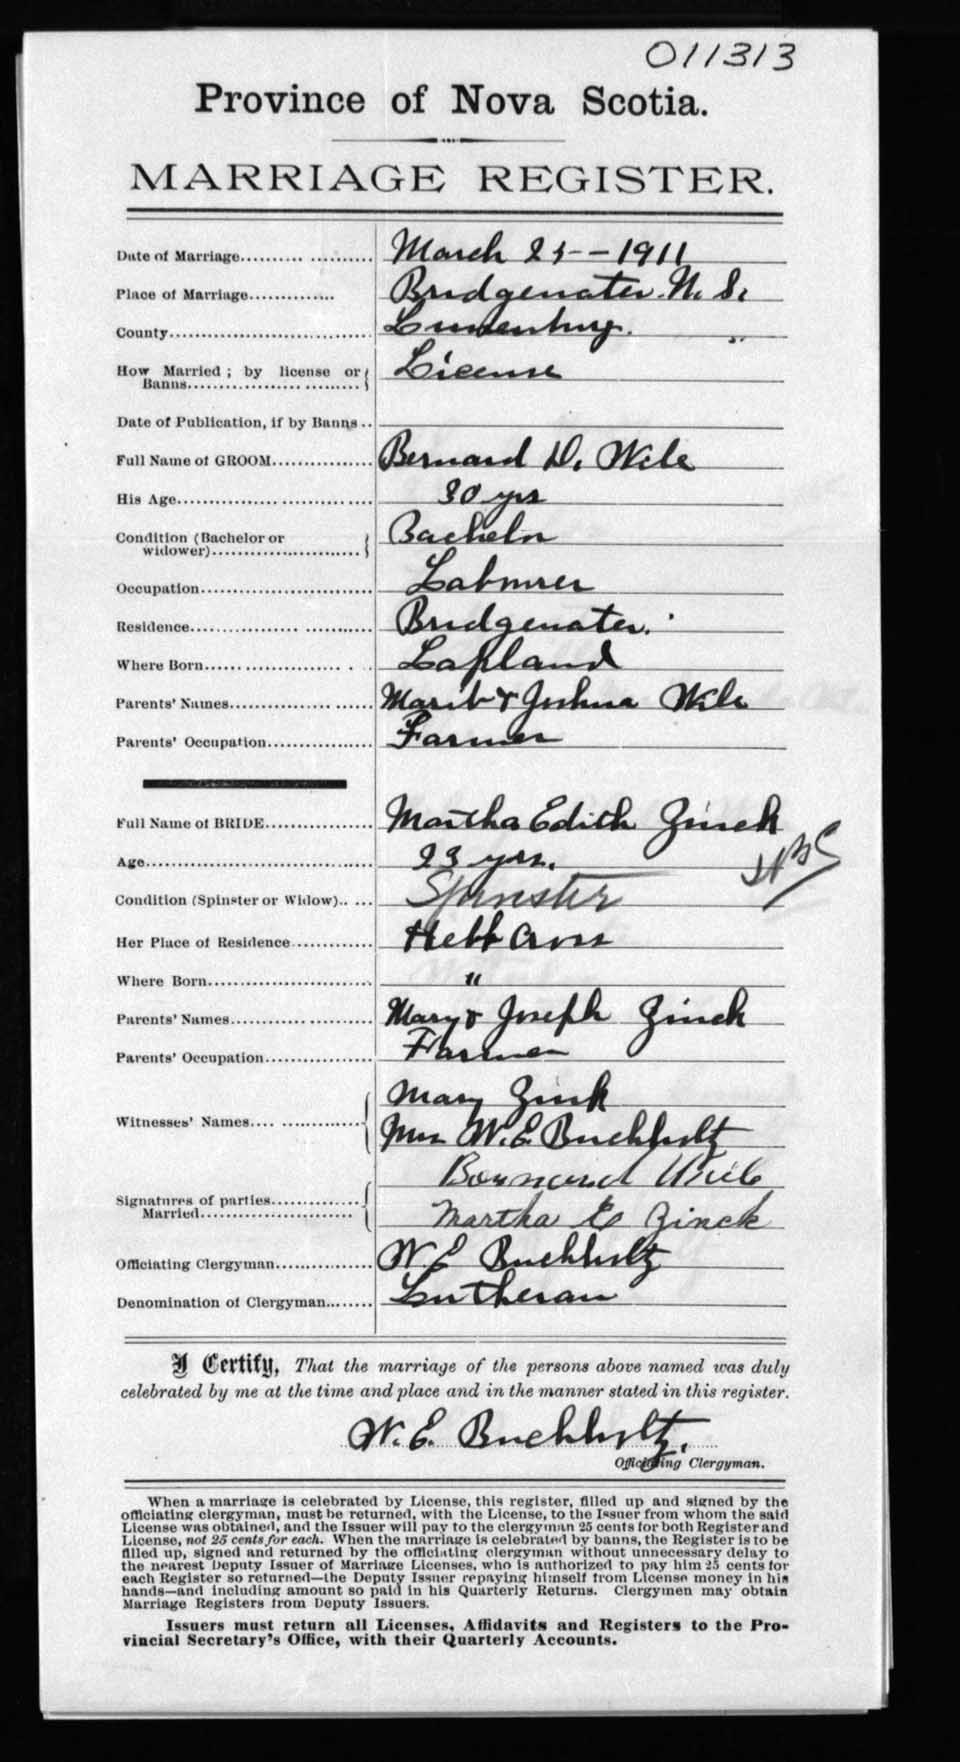 011313
Province of Nova Scotia.
MARRIAGE REGISTER.
Date of Marriage.......... March 25--1911
Place of Marriage.......... Bridgewater. N. S.
County.......... Lunenburg.
How Married; by license or License
Banns..........
Date of Publication, if by Banns..
Full Name of GROOM.......... Bernard D. Wile
His Age.......... 30 yrs
Condition (Bachelor or Bachelor
widower)..........
Occupation.......... Labourer
Residence.......... Bridgewater.
Where Born.......... Lapland
Parents' Names.......... & Joshua Wile
Parents' Occupation.......... Farmer
Full Name of BRIDE.......... Martha Edith Zinck
Age.......... 23 yrs.
Condition (Spinster or Widow)..... Spinster
Her Place of Residence.......... Hebb Cross
Where Born.......... "
Parents' Names.......... Mary & Joseph Zinck
Parents' Occupation.......... Farmer
Mary Zink
Witnesses' Names.......... Mrs W. E. Buchholtz
Signatures of parties.......... Wile
Married.......... Martha E Zinck
Officiating Clergyman.......... W E Buchholtz
Denomination of Clergyman........ Lutheran
I Certify, That the marriage of the persons above named was duly
celebrated by me at the time and place and in the manner stated in this register.
W. E. Buchholtz.
Officiating Clergyman.
When a marriage is celebrated by License, this register, filled up and signed by the
officiating clergyman, must be returned, with the License, to the Issuer from whom the said
License was obtained, and the Issuer will pay to the clergyman 25 cents for both Register and
License, not 25 cents for each. When the marriage is celebrated by banns, the Register is to be
filled up, signed and returned by the officiating clergyman without unnecessary delay to
the nearest Deputy Issuer of Marriage Licenses, who is authorized to pay him 25 cents for
each Register so returned—the Deputy Issuer repaying himself from License money in his
hands—and including amount so paid in his Quarterly Returns. Clergymen may obtain
Marriage Registers from Deputy Issuers.
Issuers must return all Licenses, Affidavits and Registers to the Pro-
vincial Secretary's Office, with their Quarterly Accounts.